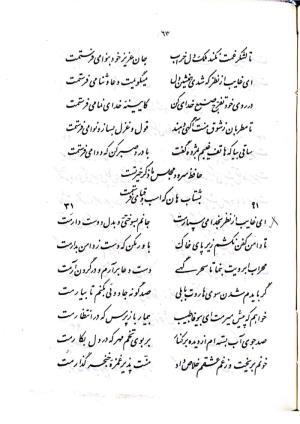 ٦٣
تا لشکر غمت نکند ملک دل خراب جان عزیز خود بنوا می فرستمت
ای غایب از نظر که شدی همنشین دل میگویمت دعا و ثنا می فرستمت
در روی خود تفرج صنع خدای کن کآیینهٔ خدای نما می فرستمت
تا مطربان ز شوق منت آگهی دهند قول و غزل بساز و نوا می فرستمت
ساقی بیا که هاتف غیبم بمژده گفت با درد صبر کن که دوا می فرستمت
حافظ سرود مجلس ما ذکر خیر تست
بشتاب هان که اسب و قبا می فرستمت
٩١ ٣١
ای غایب از نظر بخدا می سپارمت جانم بسوختی و بدل دوست دارمت
تا دامن کفن نکشم زیر پای خاک باور مکن که دست ز دامن بدارمت
محراب ابرویت بنما تا سحرگهی دست دعا برآرم و در گردن آرمت
گر بایدم شدن سوی هاروت بابلی صدگونه جادوئی بکنم تا بیارمت
خواهم که پیش میرمت ای بیوفا طبیب بیمار باز پرس که در انتظارمت
صد جوی آب بسته‌ام از دیده بر کنار بر بوی تخم مهر که در دل بکارمت
خونم بریخت وز غم عشقم خلاص داد منت پذیر غمزهٔ خنجر گذارمت